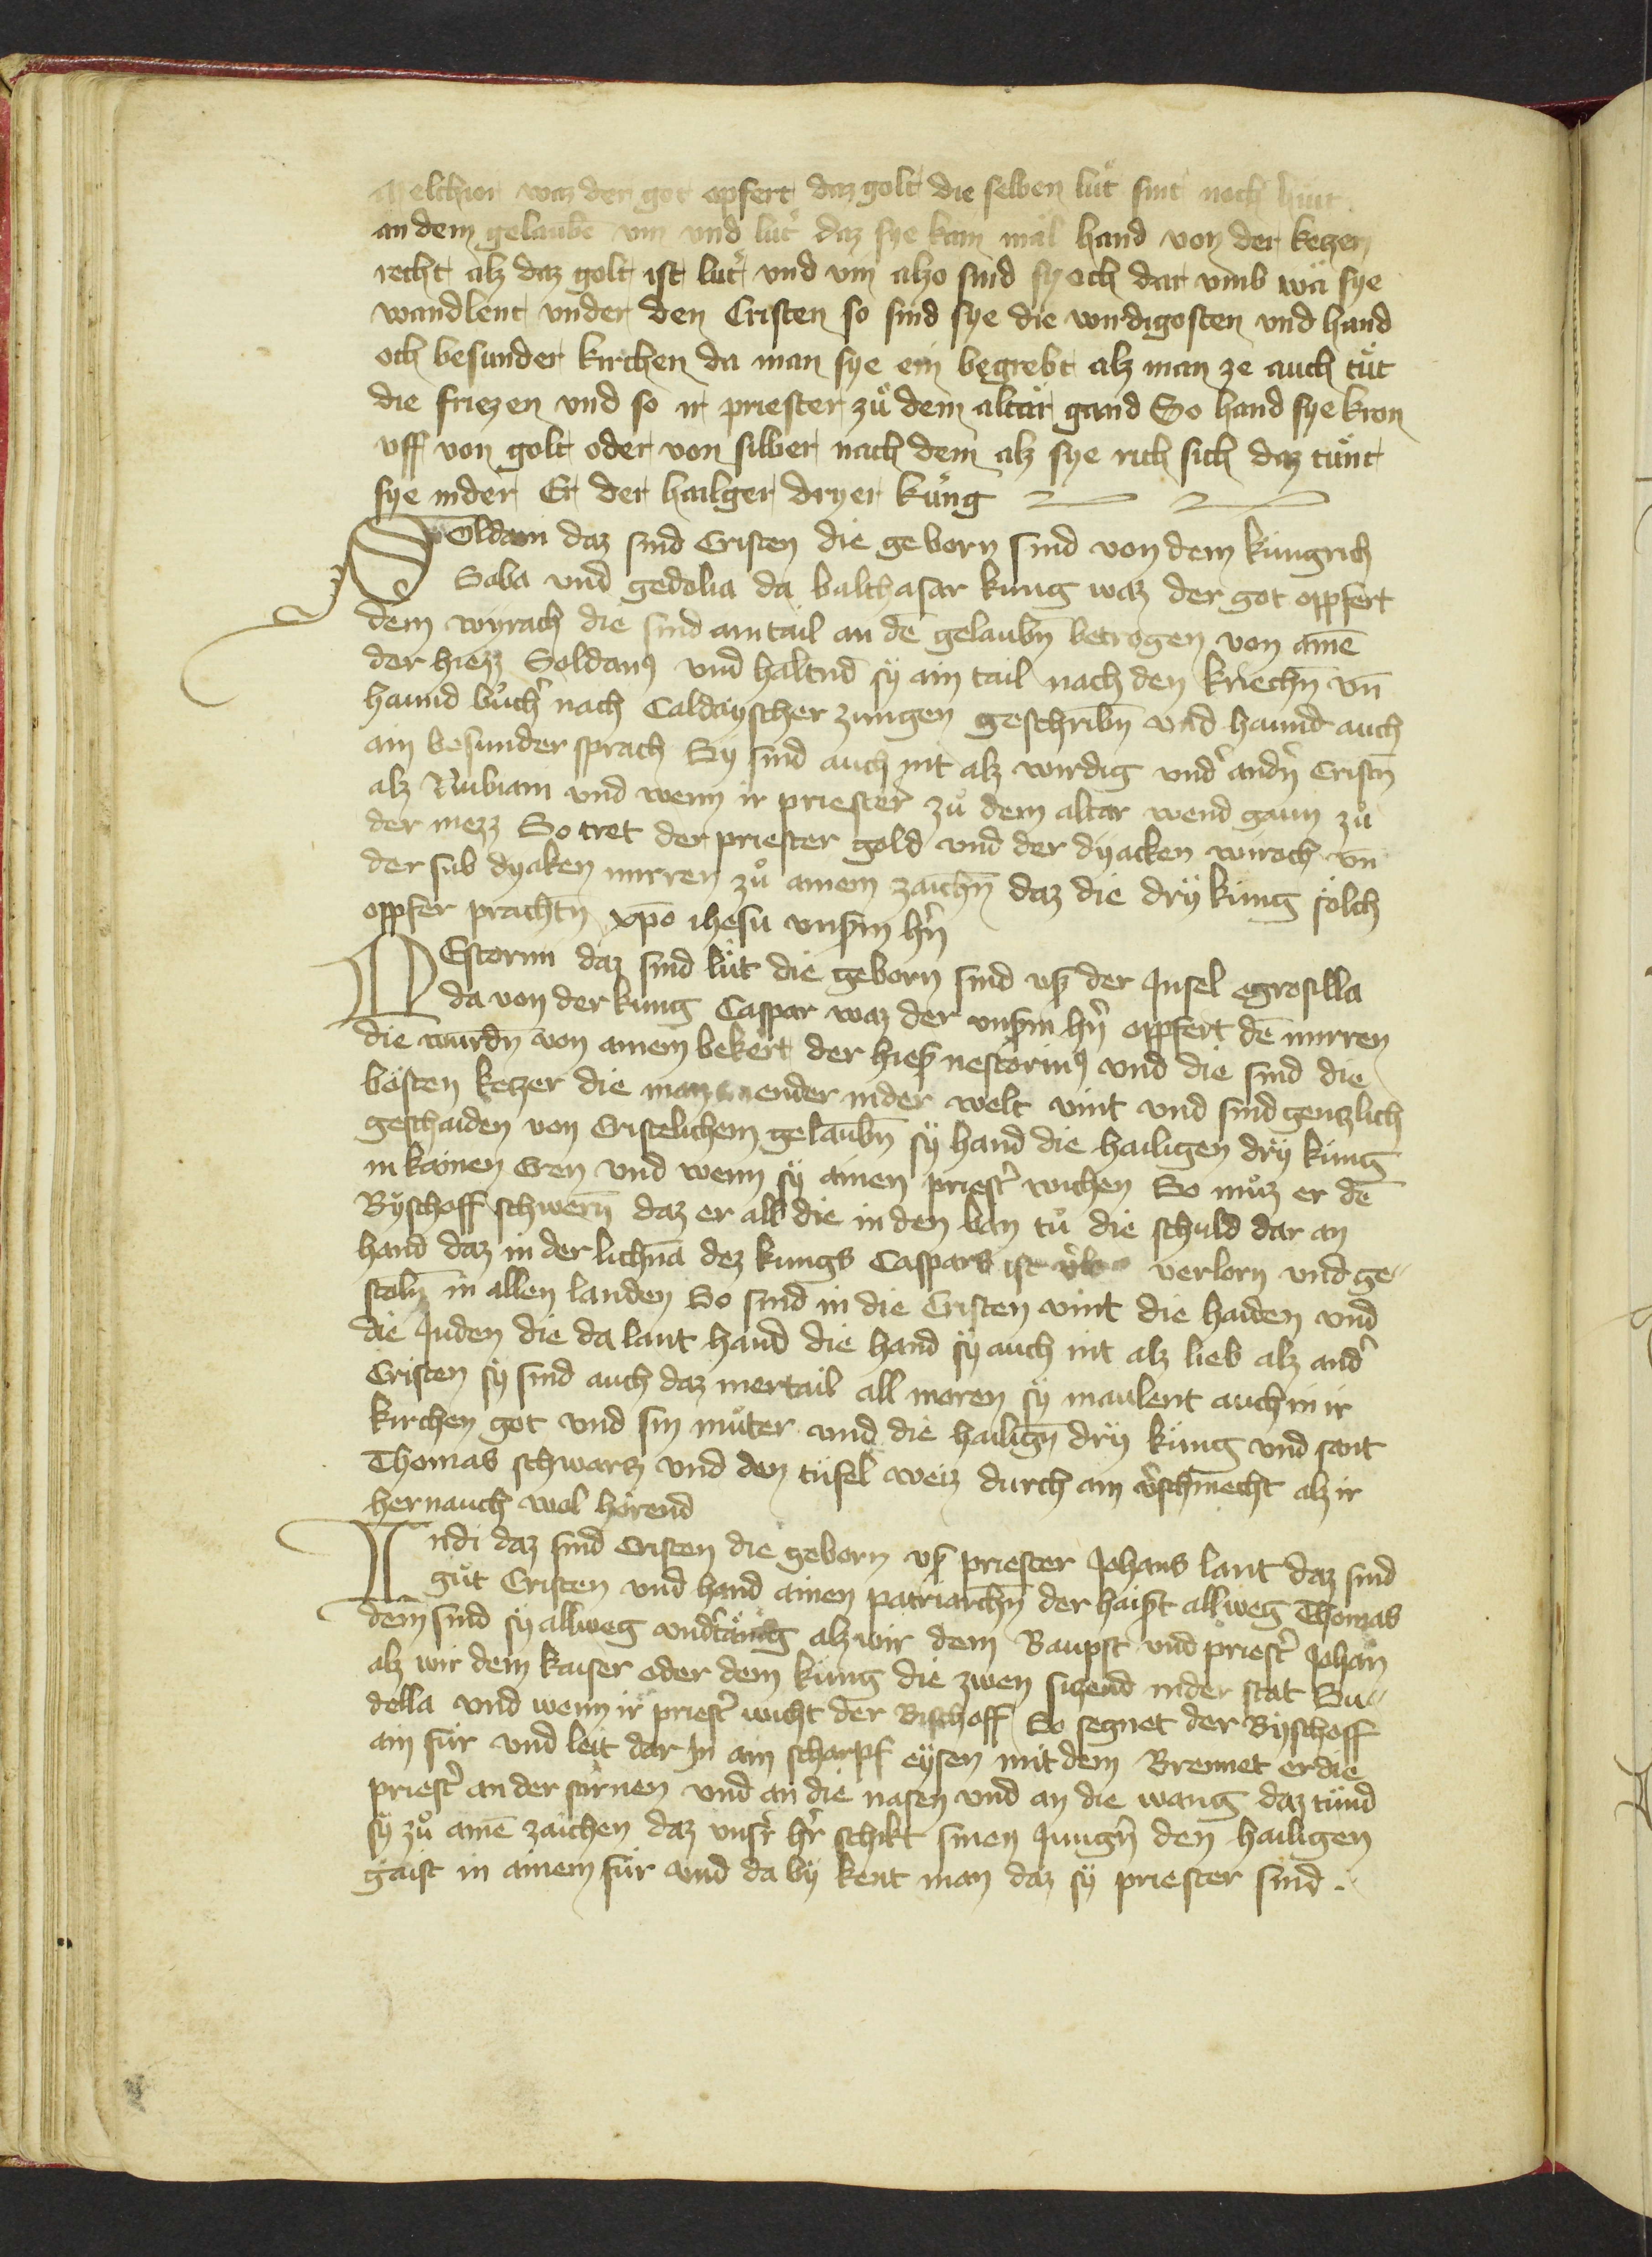 Melchior waz der got opfert daz golt die selben lüt sint noch hüt
an dem gelaube vin und luter daz sye kain mal hand von der ketzery
recht alz daz golt ist luter vnd vin alzo sind sy och dar vmb wa sye
wandlent vnder den Cristen so sind sye die wirdigosten vnd hand
och besunder kirchen da man sye ein begrebt alz man ze auch tüt
die friezen vnd so ir priester zů dem altar gand So hand sye kron
vff von golt oder von silber nach dem alz sye rich sich daz tünt
sye in der Er der hailger dryer küng
Soldani daz sind Cristen die geborn sind von dem küngrich
Saba vnd gedolia da balthasar küng waz der got opfert
dem wyrach die sind ain tail an dē gelaubn̄ betrogen von ainē
der hiezz Soldanꝯ vnd haltnd sy ain tail nach den kriechn̄ vn̄
haund bůcher nach Caldayscher zungen geschribn̄ vnd haund auch
ain besunder sprach Sy sind auch nit alz wirdig vnder andern Cristn̄
alz Nubiani vnd wenn ir priester zů dem altar wend gaun zů
der mezz So tret der priester gold vnd der dyacken wirach vn̄
der sub dyaken mirren zů ainem zaichn̄ daz die dry küng sölch
opfer prachtn̄ xp̄o ihesu vnserm hrn̄
NEstorini daz sind lüt die geborn sind vß der Insel egrosilla
da von der küng Caspar waz der vnserm hrn̄ opfert dē mirren
die wurdn̄ von ainem bekert der hieß nestorinꝯ vnd die sind die
bösten ketzer die man iender in der welt vint vnd sind gentzlich
geschaiden von Cristelichem gelaubn̄ sy hand die hailigen dry küng
in kainen Eren vnd wenn sy ainen priester wichen So můz er dē
Byschoff schwern̄ daz er all die in den ban tů die schuld dar an
hand daz in der lichna dez kungs Caspars ist verlorn vnd ge„
stoln̄ in allen landen So sind in die Cristen vint die haiden vnd
die Juden die da lant hand die hand sy auch nit alz lieb alz ander
Cristen sy sind auch daz mertail all moren sy maulent auch in ir
kirchen got vnd sin můter vnd die hailign̄ dry küng vnd sant
Thomas schwarz vnd den tüfel weiz durch ain verschmecht alz ir
hernauch wol hörend
Indi daz sind Cristen die geborn vß priester Johans lant daz sind
gůt Cristen vnd hand ainen patriarchn̄ der haißt allweg Thomas
dem sind sy allweg vndertänig alz wir dem Baupst vnd priester Johan̄
alz wir dem kaiser oder dem küng die zwen sitzend in der stat Su„
della vnd wenn ir priester wicht der Bischoff So segnet der Byschoff
ain für vnd leit dar In ain scharpf eysen mit dem Brennet er die
priester an der stirnen vnd an die nasen vnd an die wang daz tünd
sy zů ainē zaichen daz vnser hr̄ schikt sinen Jungern den hailigen
gaist in ainem für vnd da by kent man daz sy priester sind.